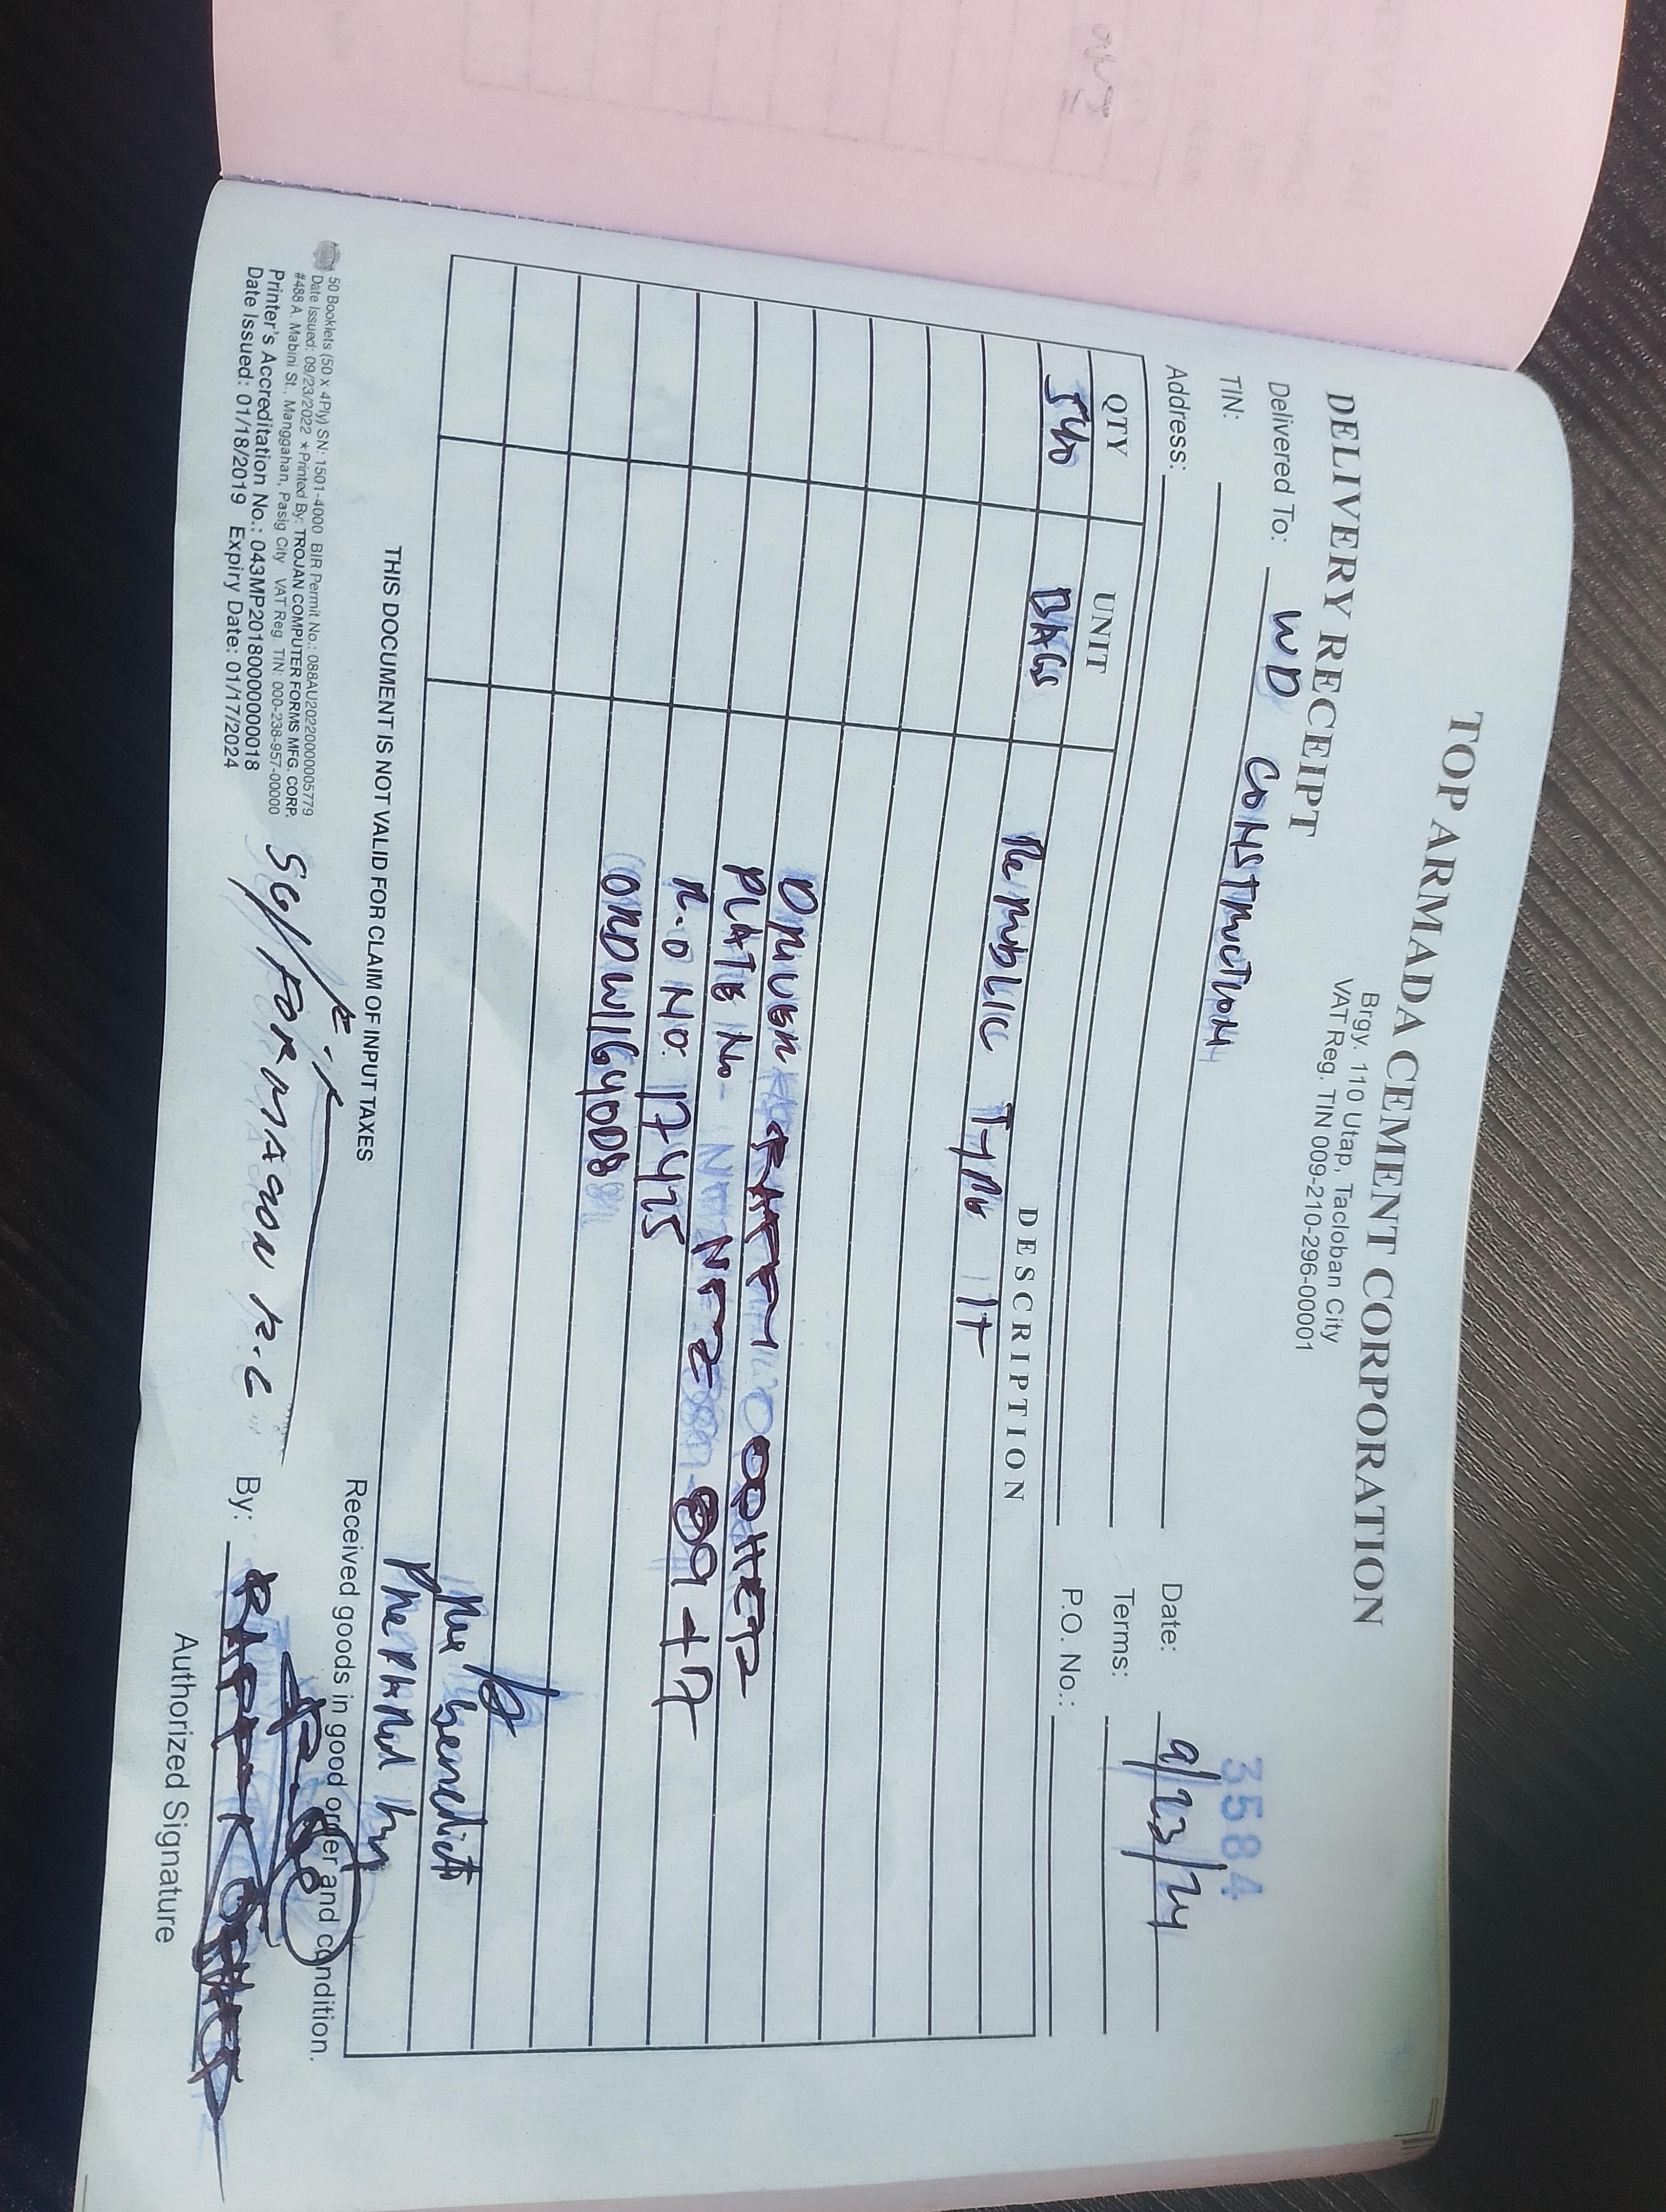 TOP ARMADA CEMENT CORPORATION
Brgy. 110 Utap, Tacloban City
VAT Reg. TIN 009-210-296-00001
DELIVERY RECEIPT
3584
Delivered To: WD CONSTRUCTION
Date: 9/23/24
TIN:
Terms:
Address:
P.O. No.:
QTY UNIT DESCRIPTION
540 BAGS Republic Type 1T
DRIVER
PLATE No- 
R.O NO: 17475
ORDW1164008
Benedict
Prepared by
THIS DOCUMENT IS NOT VALID FOR CLAIM OF INPUT TAXES
Received goods in good order and condition.
50 Booklets (50 x 4Ply) SN: 1501-4000 BIR Permit No.: 088AU20220000005779
Date Issued: 09/23/2022 * Printed By: TROJAN COMPUTER FORMS MFG. CORP.
#488 A. Mabini St., Manggahan, Pasig City VAT Reg. TIN: 000-238-957-00000
Printer's Accreditation No.: 043MP20180000000018
Date Issued: 01/18/2019 Expiry Date: 01/17/2024
SG/FORMAGON R.C
By:
Authorized Signature